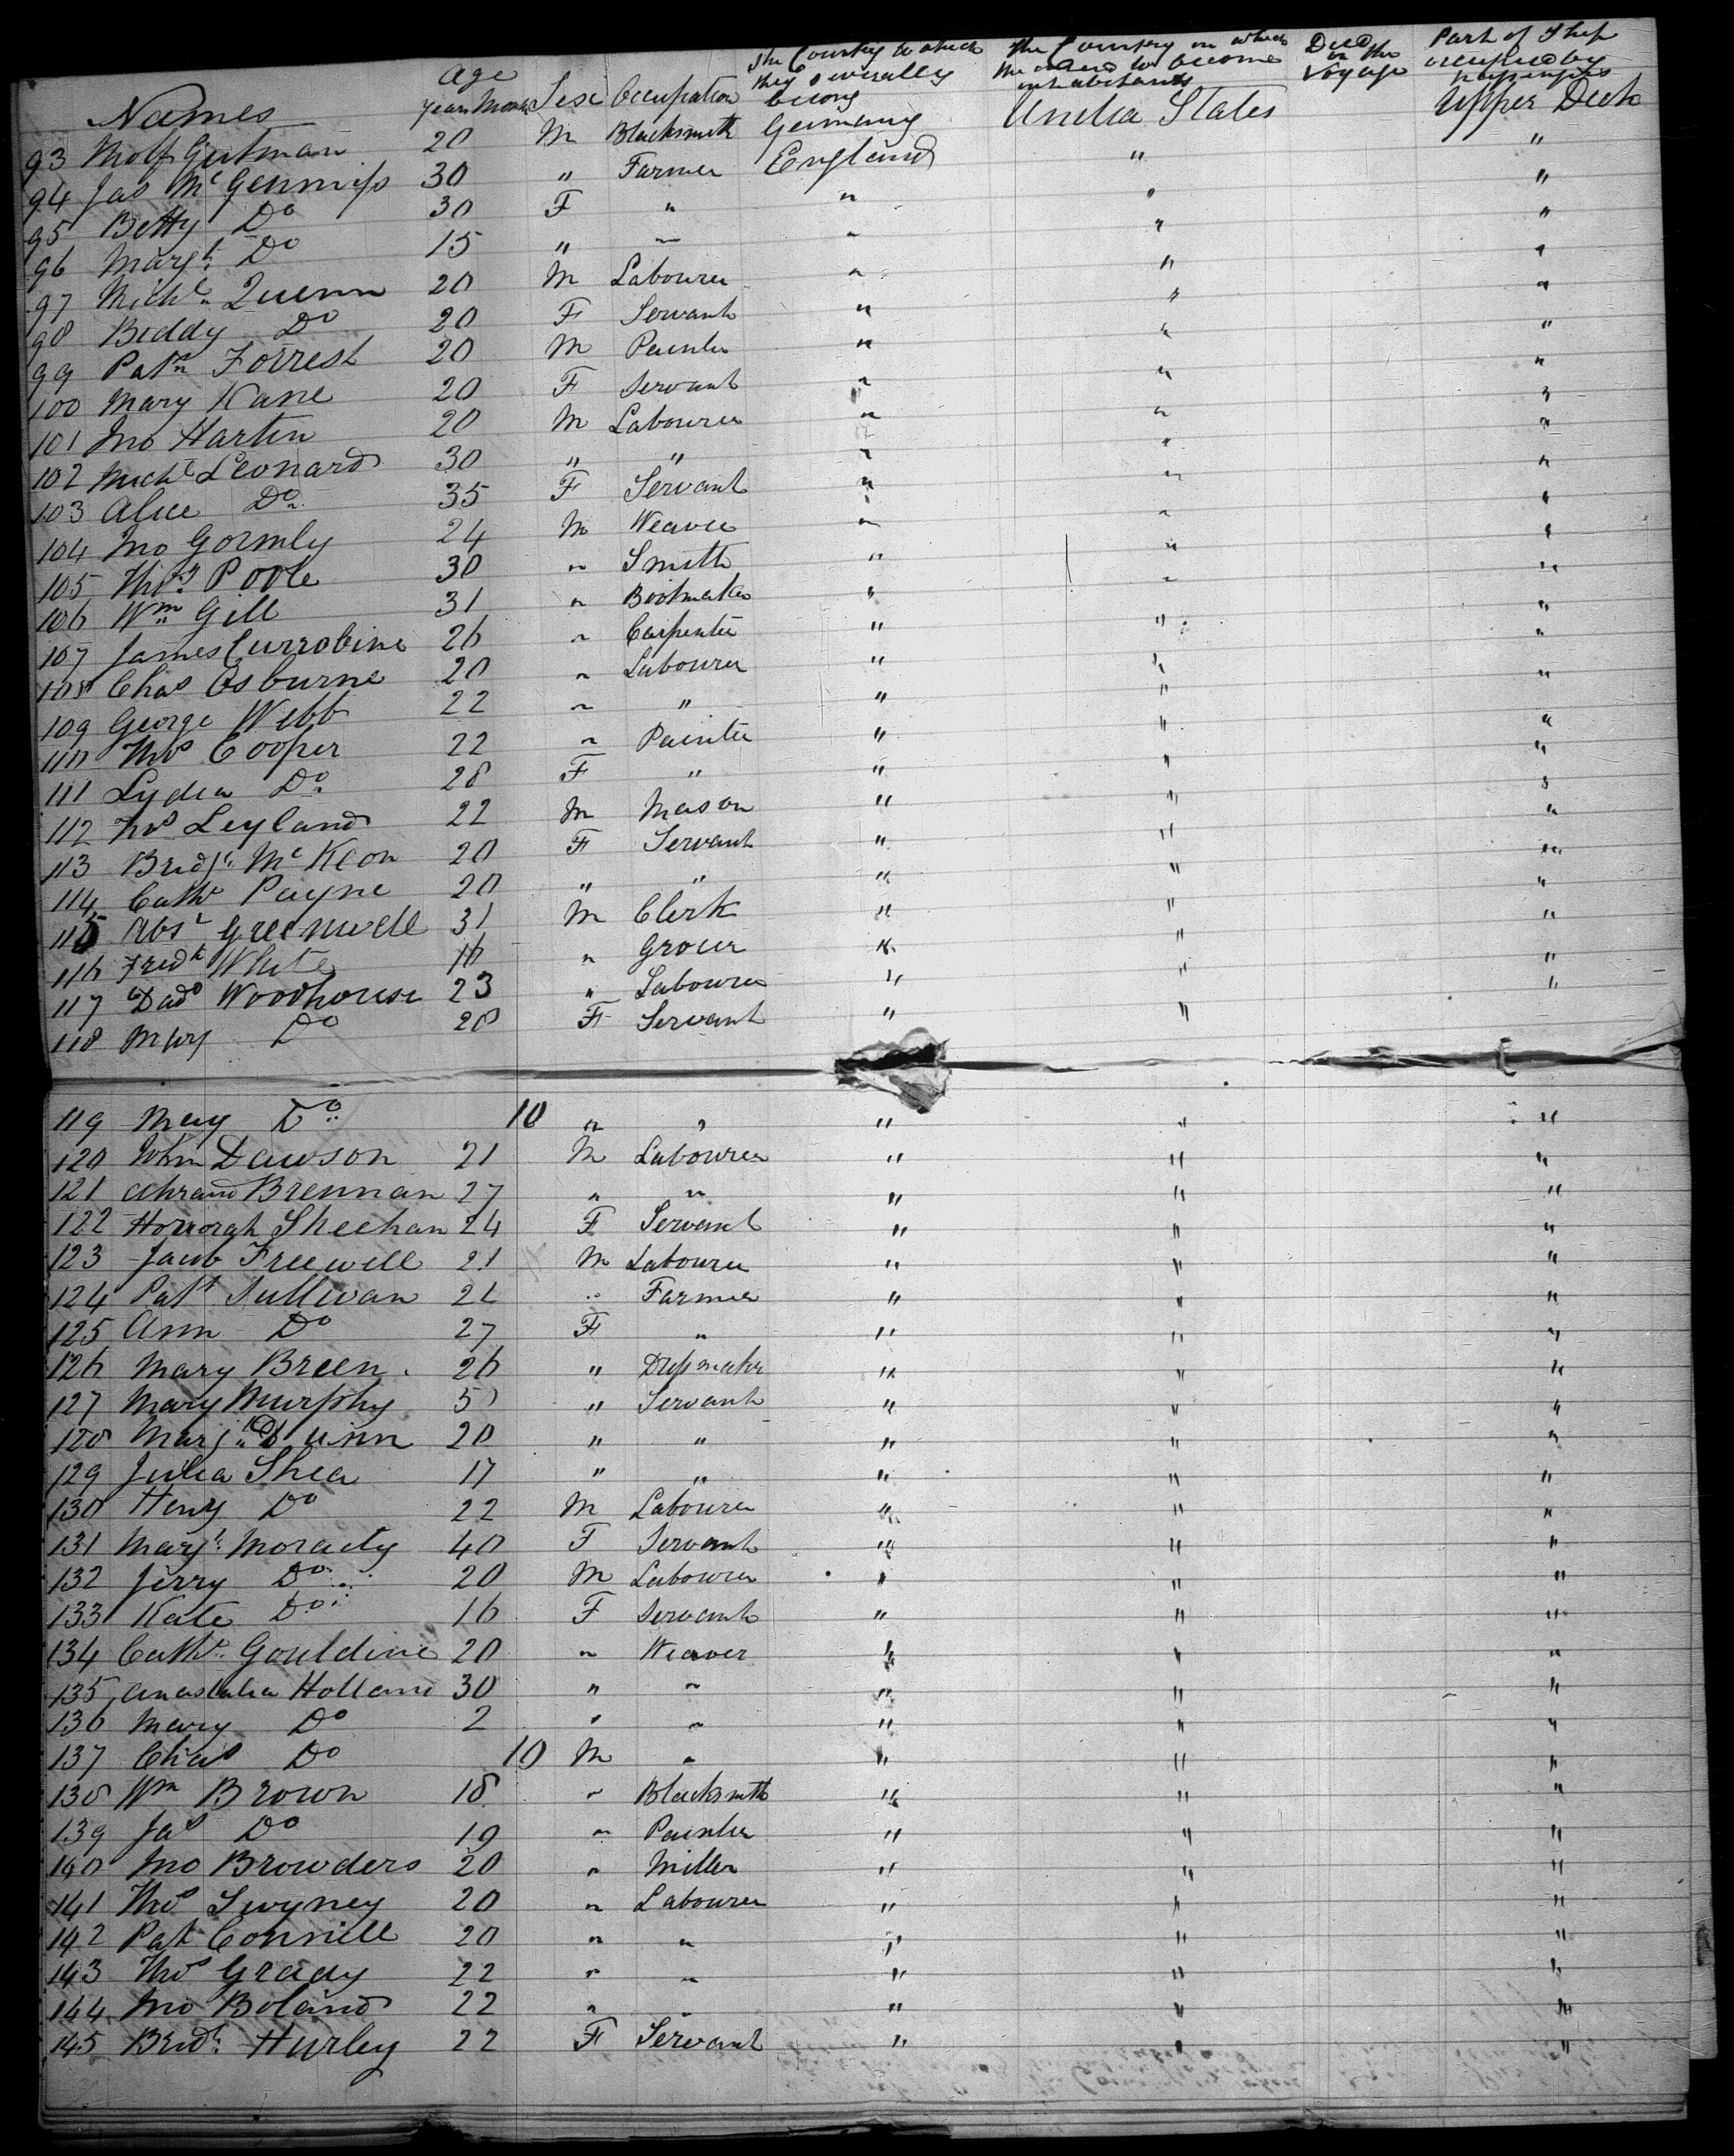 Names Age years Months Sex Occupation The Country to which they severally belong The Country in which they intend to become inhabitants Died on the Voyage Part of Ship occupied by passengers
93 Wolf Gutman 20 M Blacksmith Germany United States Upper Deck
94 Jas McGenniss 30 " Farmer England " "
95 Betty Do 30 F " " " "
96 Margt Do 15 " " " " "
97 Michl Quenn 20 M Labourer " " "
98 Biddy Do 20 F Servant " " "
99 Patk Forrest 20 M Painter " " "
100 Mary Kane 20 F Servant " " "
101 Jno Hartin 20 M Labourer " " "
102 Michl Leonard 30 " " " " "
103 Alice Do 35 F Servant " " "
104 Jno Gormly 24 M Weaver " " "
105 Thos Poole 30 " Smith " " "
106 Wm Gill 31 " Bootmaker " " "
107 James Currobine 26 " Carpenter " " "
108 Chas Osburne 20 " Labourer " " "
109 George Webb 22 " " " " "
110 Thos Cooper 22 " Painter " " "
111 Lydia Do 28 F " " " "
112 Thos Leyland 22 M Mason " " "
113 Bridgt McKeon 20 F Servant " " "
114 Cathe Payne 20 " " " " "
115 Absr Greenwell 31 M Clerk " " "
116 Fredk White 16 " Grocer " " "
117 Woodhouse 23 " Labourer " " "
118 Mary Do 28 F Servant " " "
119 Mary Do 10 " " " " "
120 John Dawson 21 M Labourer " " "
121 Brennan 27 " " " " "
122 Honorah Sheehan 24 F Servant " " "
123 Jacob Freewell 21 M Labourer " " "
124 Patt Sullivan 21 " Farmer " " "
125 Ann Do 27 F " " " "
126 Mary Breen 26 " Dressmaker " " "
127 Mary Murphy " Servant " " "
128 Margt Dunn 20 " " " " "
129 Julia Shea 17 " " " " "
130 Heny Do 22 M Labourer " " "
131 Margt Moraity 40 F Servant " " "
132 Jerry Do 20 M Labourer " " "
133 Kate Do 16 F Servant " " "
134 Cathe Gouldine 20 " Weaver " " "
135 Anastatia Holland 30 " " " " "
136 Mary Do 2 " " " " "
137 Chas Do 10 M " " " "
138 Wm Brown 18 " Blacksmith " " "
139 Jas Do 19 " Painter " " "
140 Jno Browders 20 " Miller " " "
141 Thos Swyney 20 " Labourer " " "
142 Pat Connill 20 " " " " "
143 Thos Grady 22 " " " " "
144 Jno Boland 22 " " " " "
145 Bridt Hurley 22 F Servant " " "